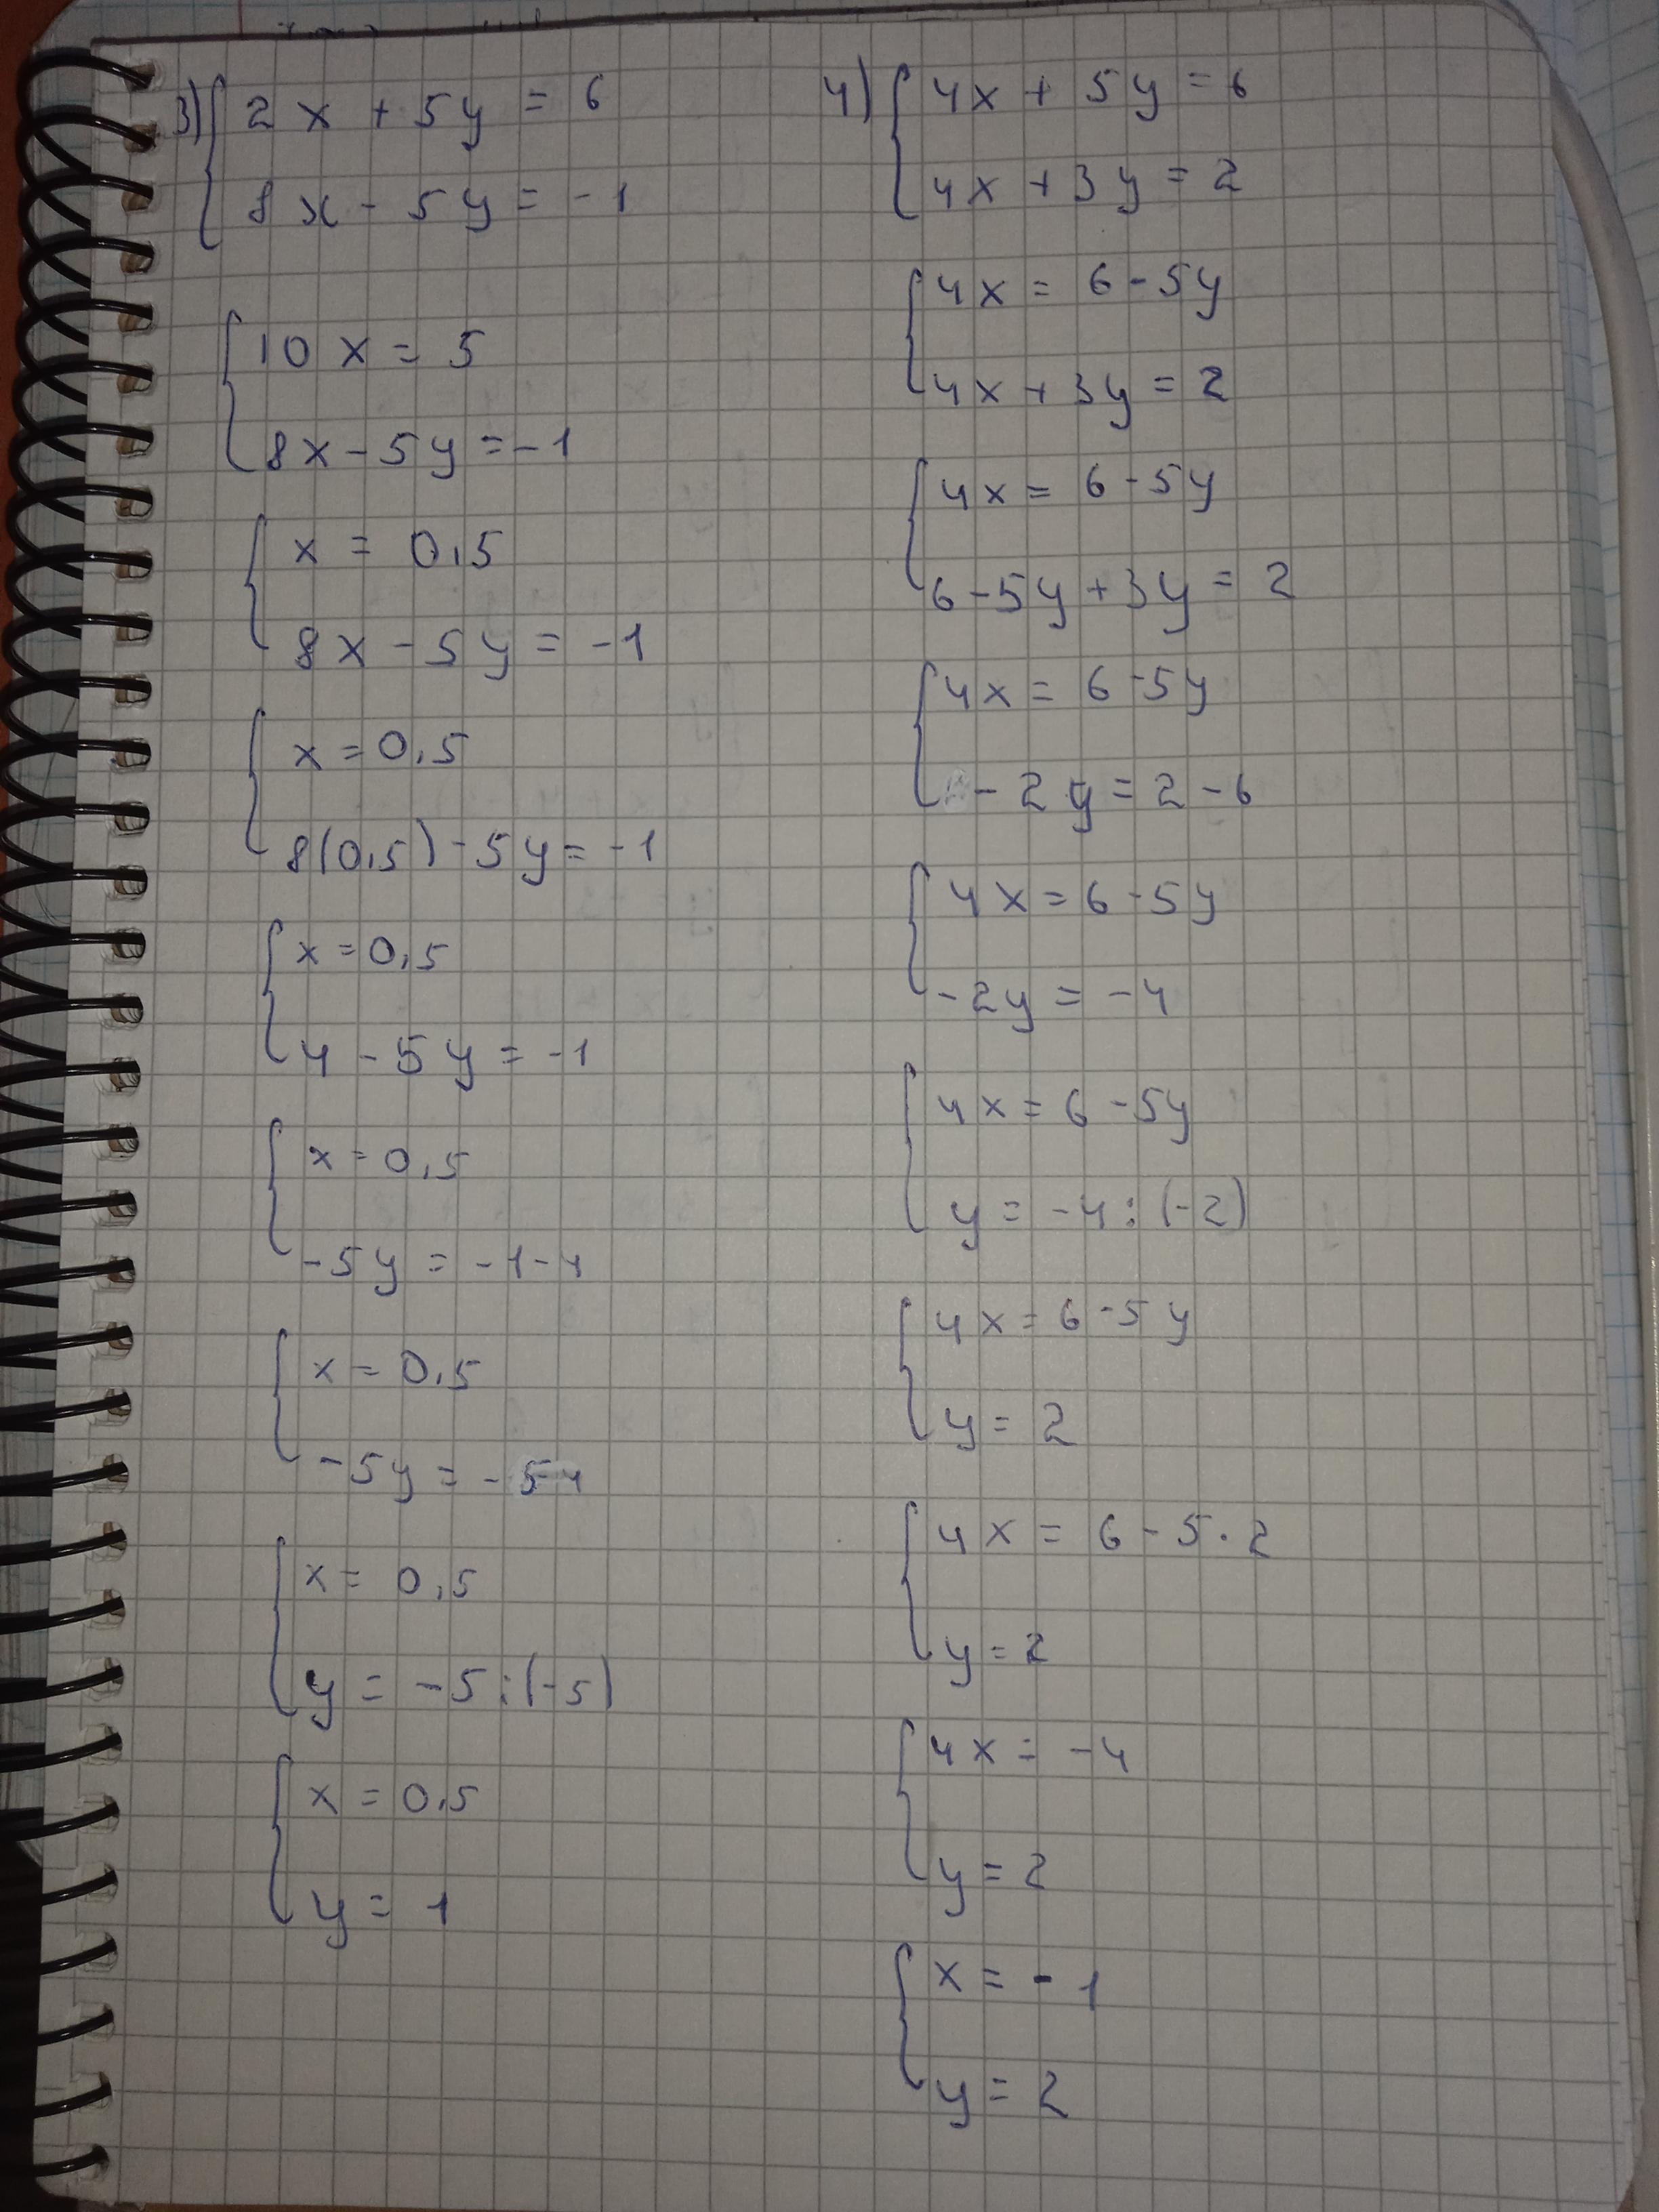 3) 2x + 5y = 6
8x - 5y = -1
10x = 5
8x - 5y = -1
x = 0,5
8x - 5y = -1
x = 0,5
8(0,5) - 5y = -1
x = 0,5
4 - 5y = -1
x = 0,5
-5y = -1-4
x = 0,5
-5y = -5
x = 0,5
y = -5:(-5)
x = 0,5
y = 1
4) 4x + 5y = 6
4x + 3y = 2
4x = 6 - 5y
4x + 3y = 2
4x = 6 - 5y
6 - 5y + 3y = 2
4x = 6 - 5y
-2y = 2 - 6
4x = 6 - 5y
-2y = -4
4x = 6 - 5y
y = -4:(-2)
4x = 6 - 5y
y = 2
4x = 6 - 5·2
y = 2
4x = -4
y = 2
x = -1
y = 2